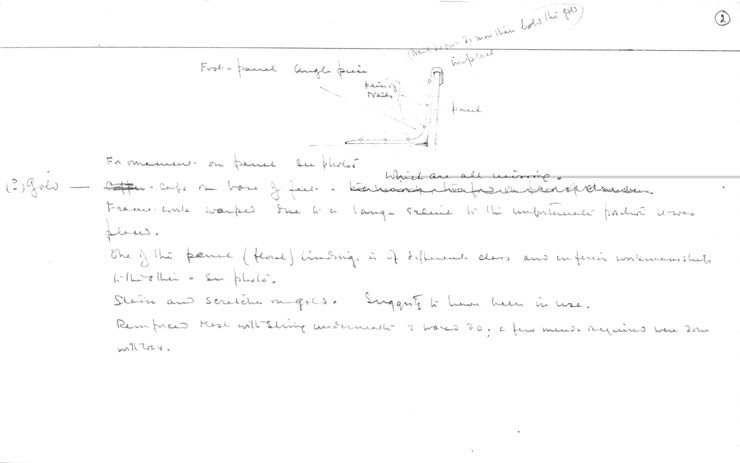 2
(made to do no more than hold the gold
in place
Foot-panel angle piece
pairs of
nails
panel
For ornament on panel see photos
which are all missing.
(?) gold — caps on base of feet -
Frame-work warped due to a large extent to the unfortunate position it was
placed.
One of the panel (floral) bindings is of different class and inferior workmanship
to the other - see photo.
Stain and scratches on gold. Suggests to have been in use.
Reinforced mesh with string underneath & waxed do; a few mends required were done
with wax.